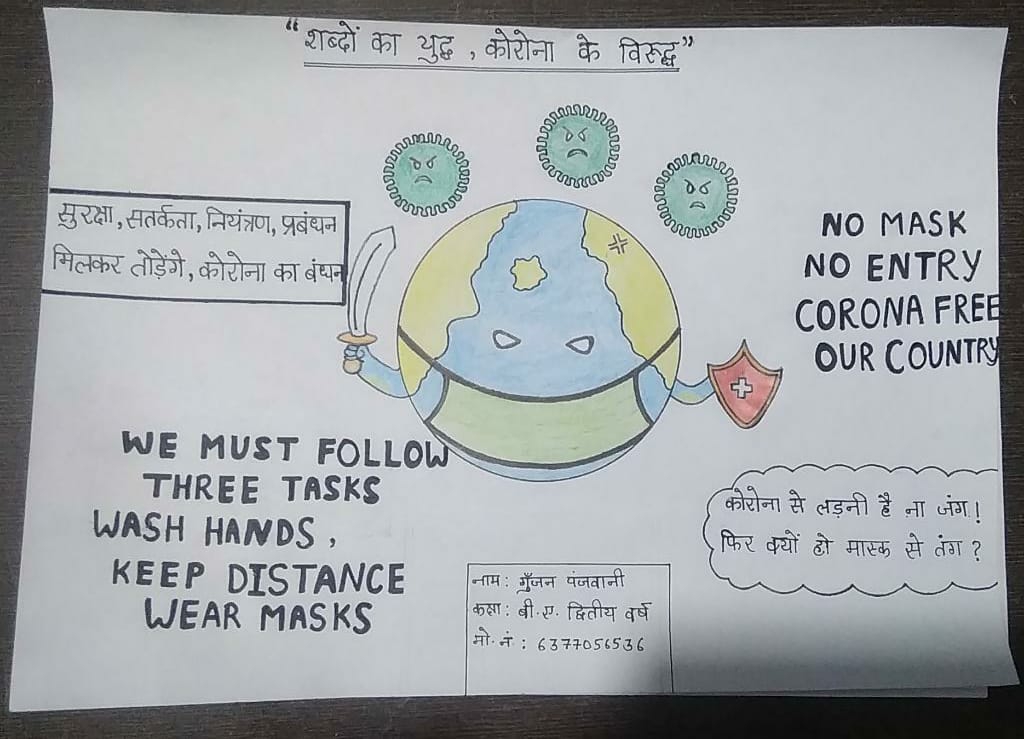 "शब्दों का युद्ध, कोरोना के विरूद्ध"
सुरक्षा, सतर्कता, नियंत्रण, प्रबंधन
मिलकर तोड़ेंगे, कोरोना का बंधन
NO MASK
NO ENTRY
CORONA FREE
OUR COUNTRY
WE MUST FOLLOW
THREE TASKS
WASH HANDS,
KEEP DISTANCE
WEAR MASKS
कोरोना से लड़नी है ना जंग!
फिर क्यों हो मास्क से तंग?
नाम: गुँजन पंजवानी
कक्षा: बी.ए. द्वितीय वर्ष
मो. नं.: 6377056536